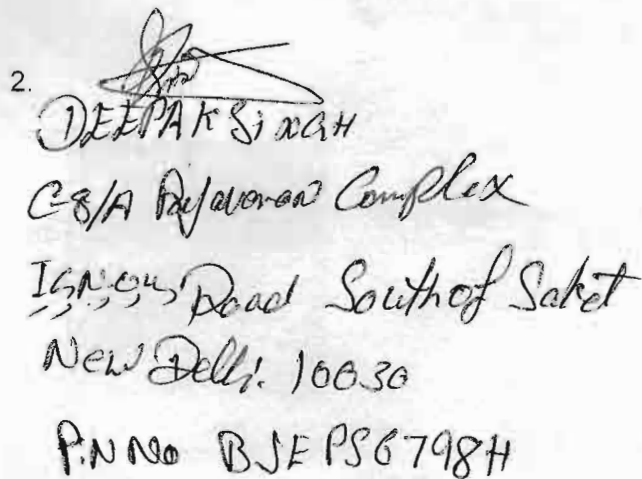 2.
DEEPAK SiNGH
C-8/A Paryavaran Complex
IGNOU Road South of Saket
New Delhi. 10030
P.N No BJEPS6798H